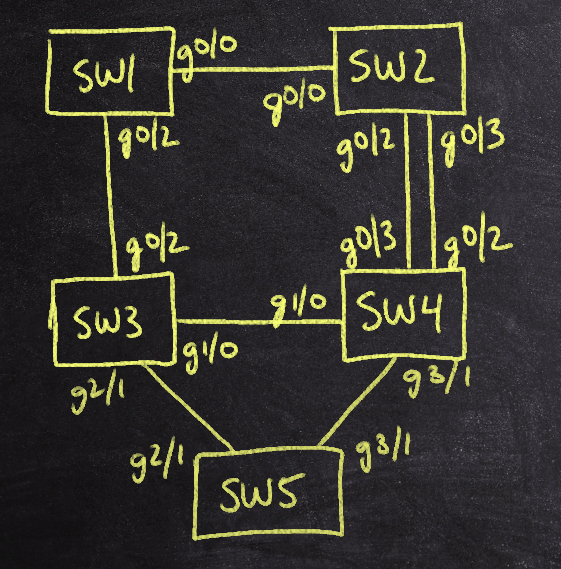 SW1
g0/0
SW2
g0/0
g0/2
g0/2
g0/3
g0/2
g0/3
g0/2
SW3
g1/0
SW4
g1/0
g2/1
g3/1
g2/1
g3/1
SW5